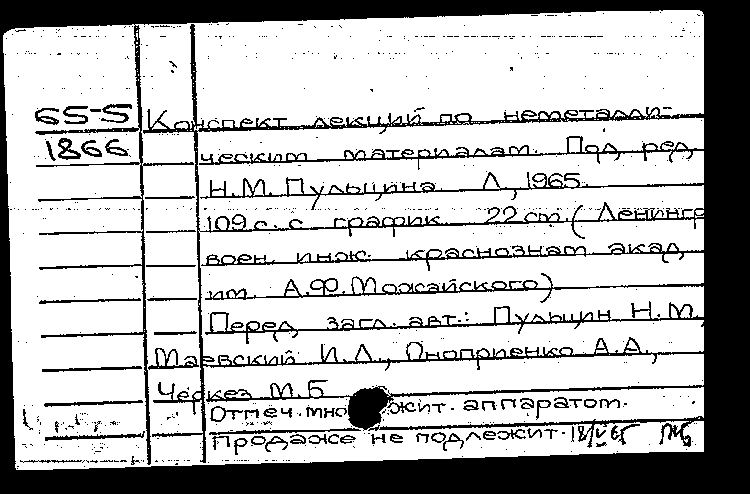 65-5 Конспект лекций по неметалли-
1866 ческим материалам. Под ред.
Н.М. Пульцина. Л., 1965.
109 с. с график. 22 см. (Ленингр
воен. инж. краснознам акад.
им. А.Ф. Можайского)
Перед загл. авт.: Пульцин Н.М.,
Маевский И.Л., Оноприенко А.А.,
Черкез М.Б
Отпеч. мно жит. аппаратом.
Продаже не подлежит. 18/V 65